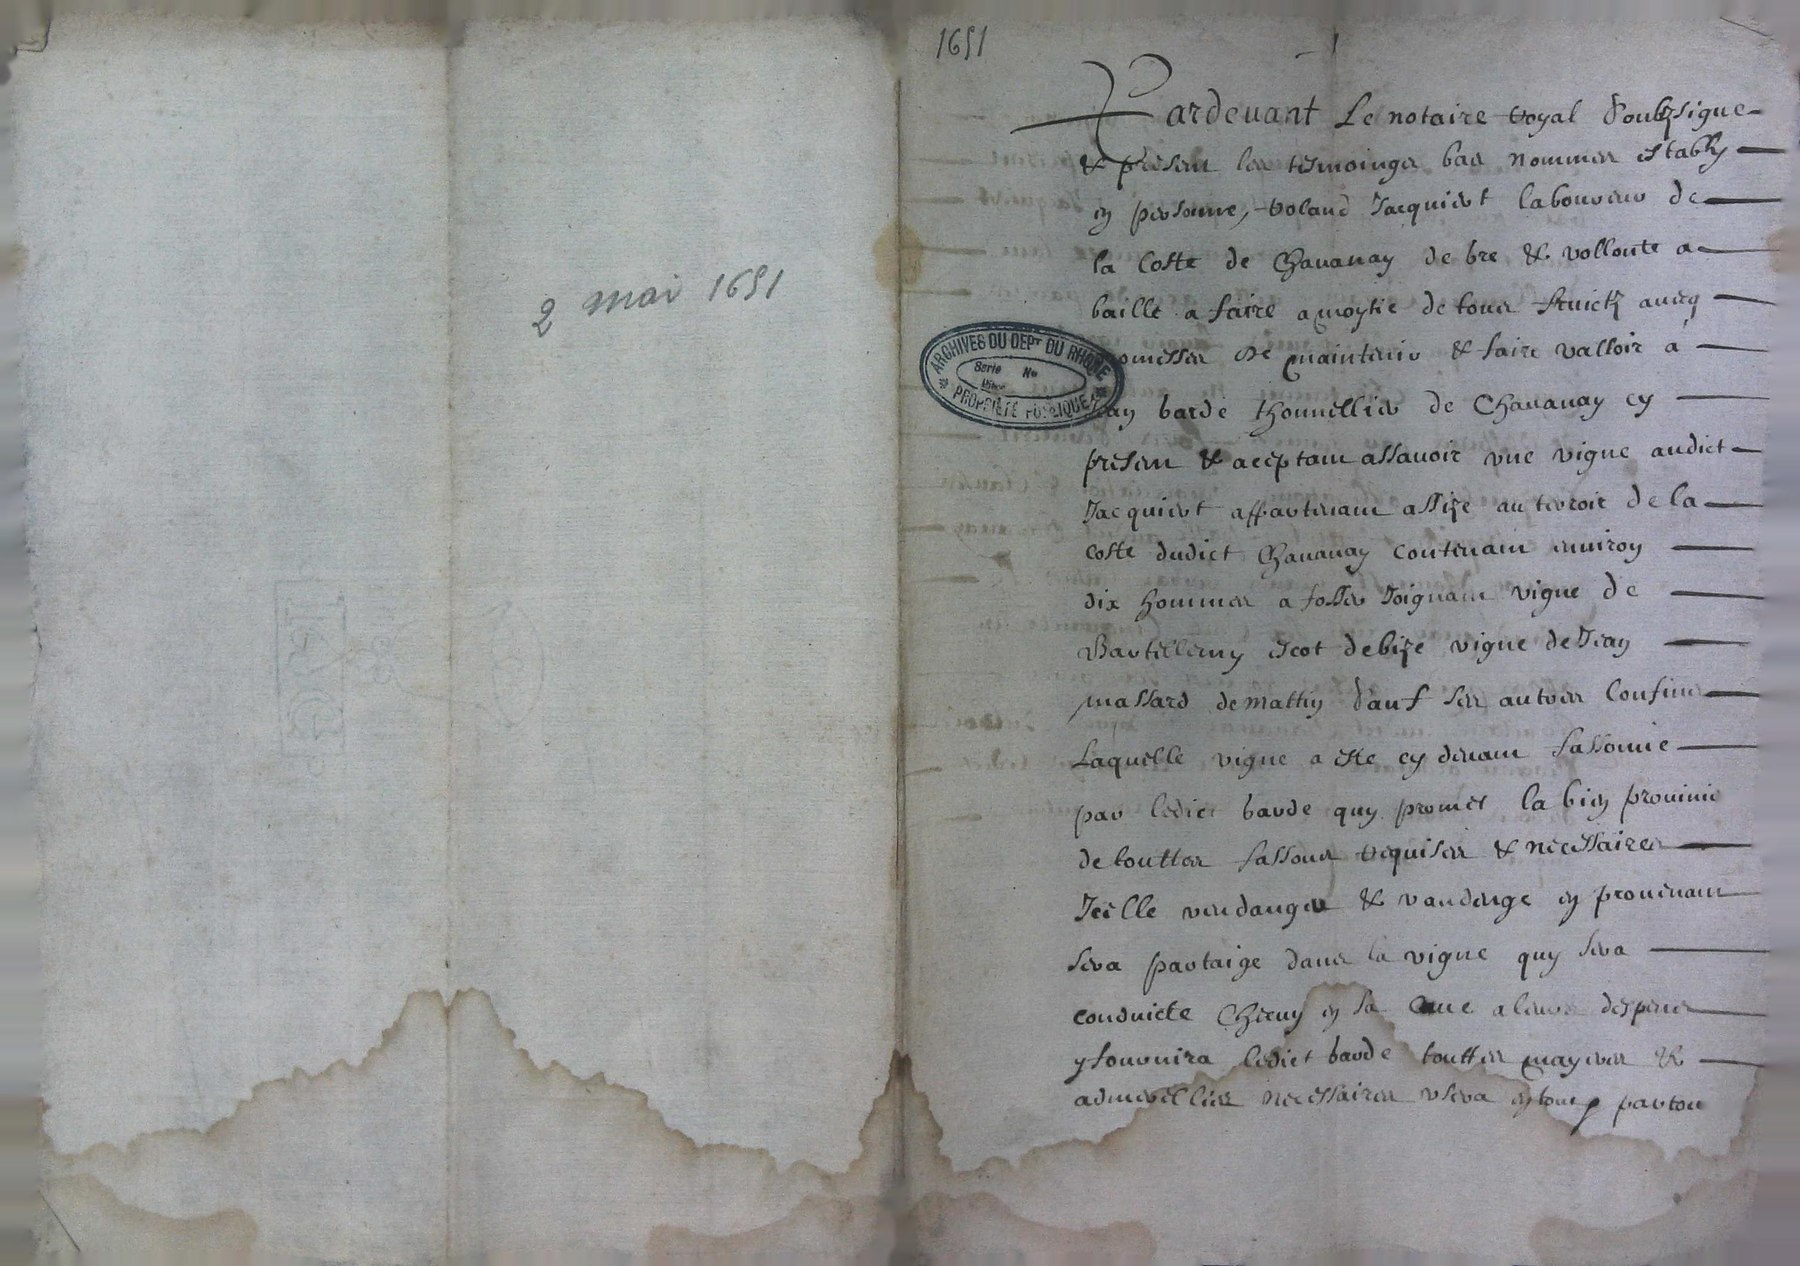 2 mai 1651
1651
Pardevant Le notaire royal Soubzsigne
& presens les tesmoings bas nommes estably
en personne, roland Jacquiert laboureur de
la Coste de Chavanay de gre & vollonte a
baille a faire a moytie de tous fruictz avecq
promesses de maintenir & faire valloir a
Jean barde thonnellier de Chavanay cy
present & aceptant assavoir vne vigne audict
Jacquiert appartenant assize au terroir de la
coste dudict Chavanay contenant environ
dix hommes a fosser Joignant vigne de
Bartellemy escot de bize vigne de Jean
massard de mattin Sauf ses autres Confins
Laquelle vigne a este cy devant fassonne
par ledict barde quy promet la bien
de touttes fassons requises & necessaires
Icelle vendanger & vandenge en provenant
sera partaige dans la vigne quy sera
conduicte en sa cave a leurs despens
y fournira ledict barde touttes &
necessaires vsera en tout
ARCHIVES DU DEPT DU RHONE
Serie No
PROPRIETE PUBLIQUE